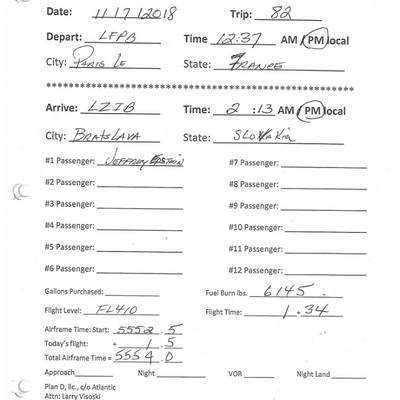 Date: 11/7/2018 Trip: 82
Depart: LFPB Time 12:37 AM / PM local
City: Paris Le State: France
************************************************
Arrive: LZIB Time: 2 :13 AM / PM local
City: Bratslava State: Slovakia
#1 Passenger: Jeffrey Epstein #7 Passenger:
#2 Passenger: #8 Passenger:
#3 Passenger: #9 Passenger:
#4 Passenger: #10 Passenger:
#5 Passenger: #11 Passenger:
#6 Passenger: #12 Passenger:
Gallons Purchased: Fuel Burn lbs. 6145
Flight Level: FL410 Flight Time: 1 + 34
Airframe Time: Start: 5552 . 5
Today's flight: + 1 . 5
Total Airframe Time = 5554 . 0
Approach Night VOR Night Land
Plan D, llc., c/o Atlantic
Attn: Larry Visoski